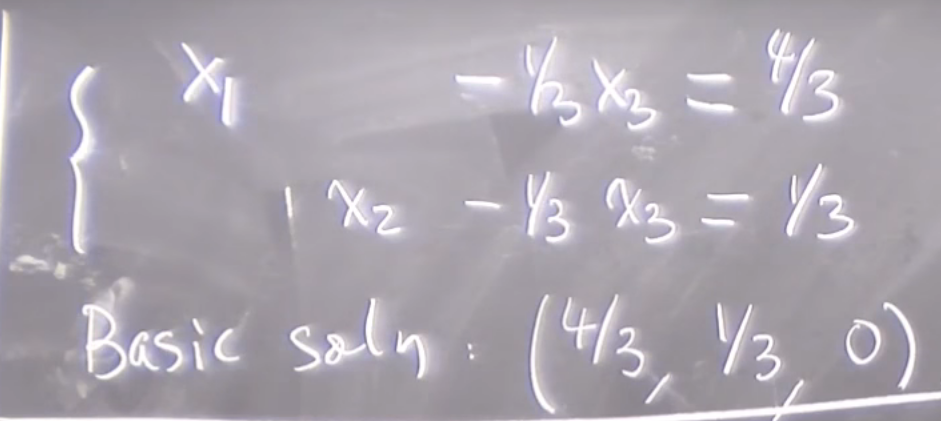 { x₁ - 1/3 x₃ = 4/3
1 x₂ - 1/3 x₃ = 1/3
Basic soln : (4/3, 1/3, 0)